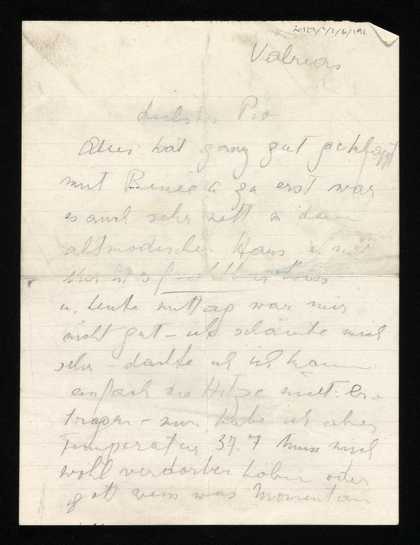 Valvins
liebster Pio
Alles hat ganz gut geklappt
mit Renée u zu erst war
es auch sehr nett in dem
altmodischen Haus u.
u. heute mittag war mir
nicht gut – ich schämte mich
sehr – dachte ich ich kann
einfach die Hitze nicht er-
tragen – nun habe ich aber
Temperatur 37.7 muss mich
wohl verdorben haben oder
gott weiss was Momentan